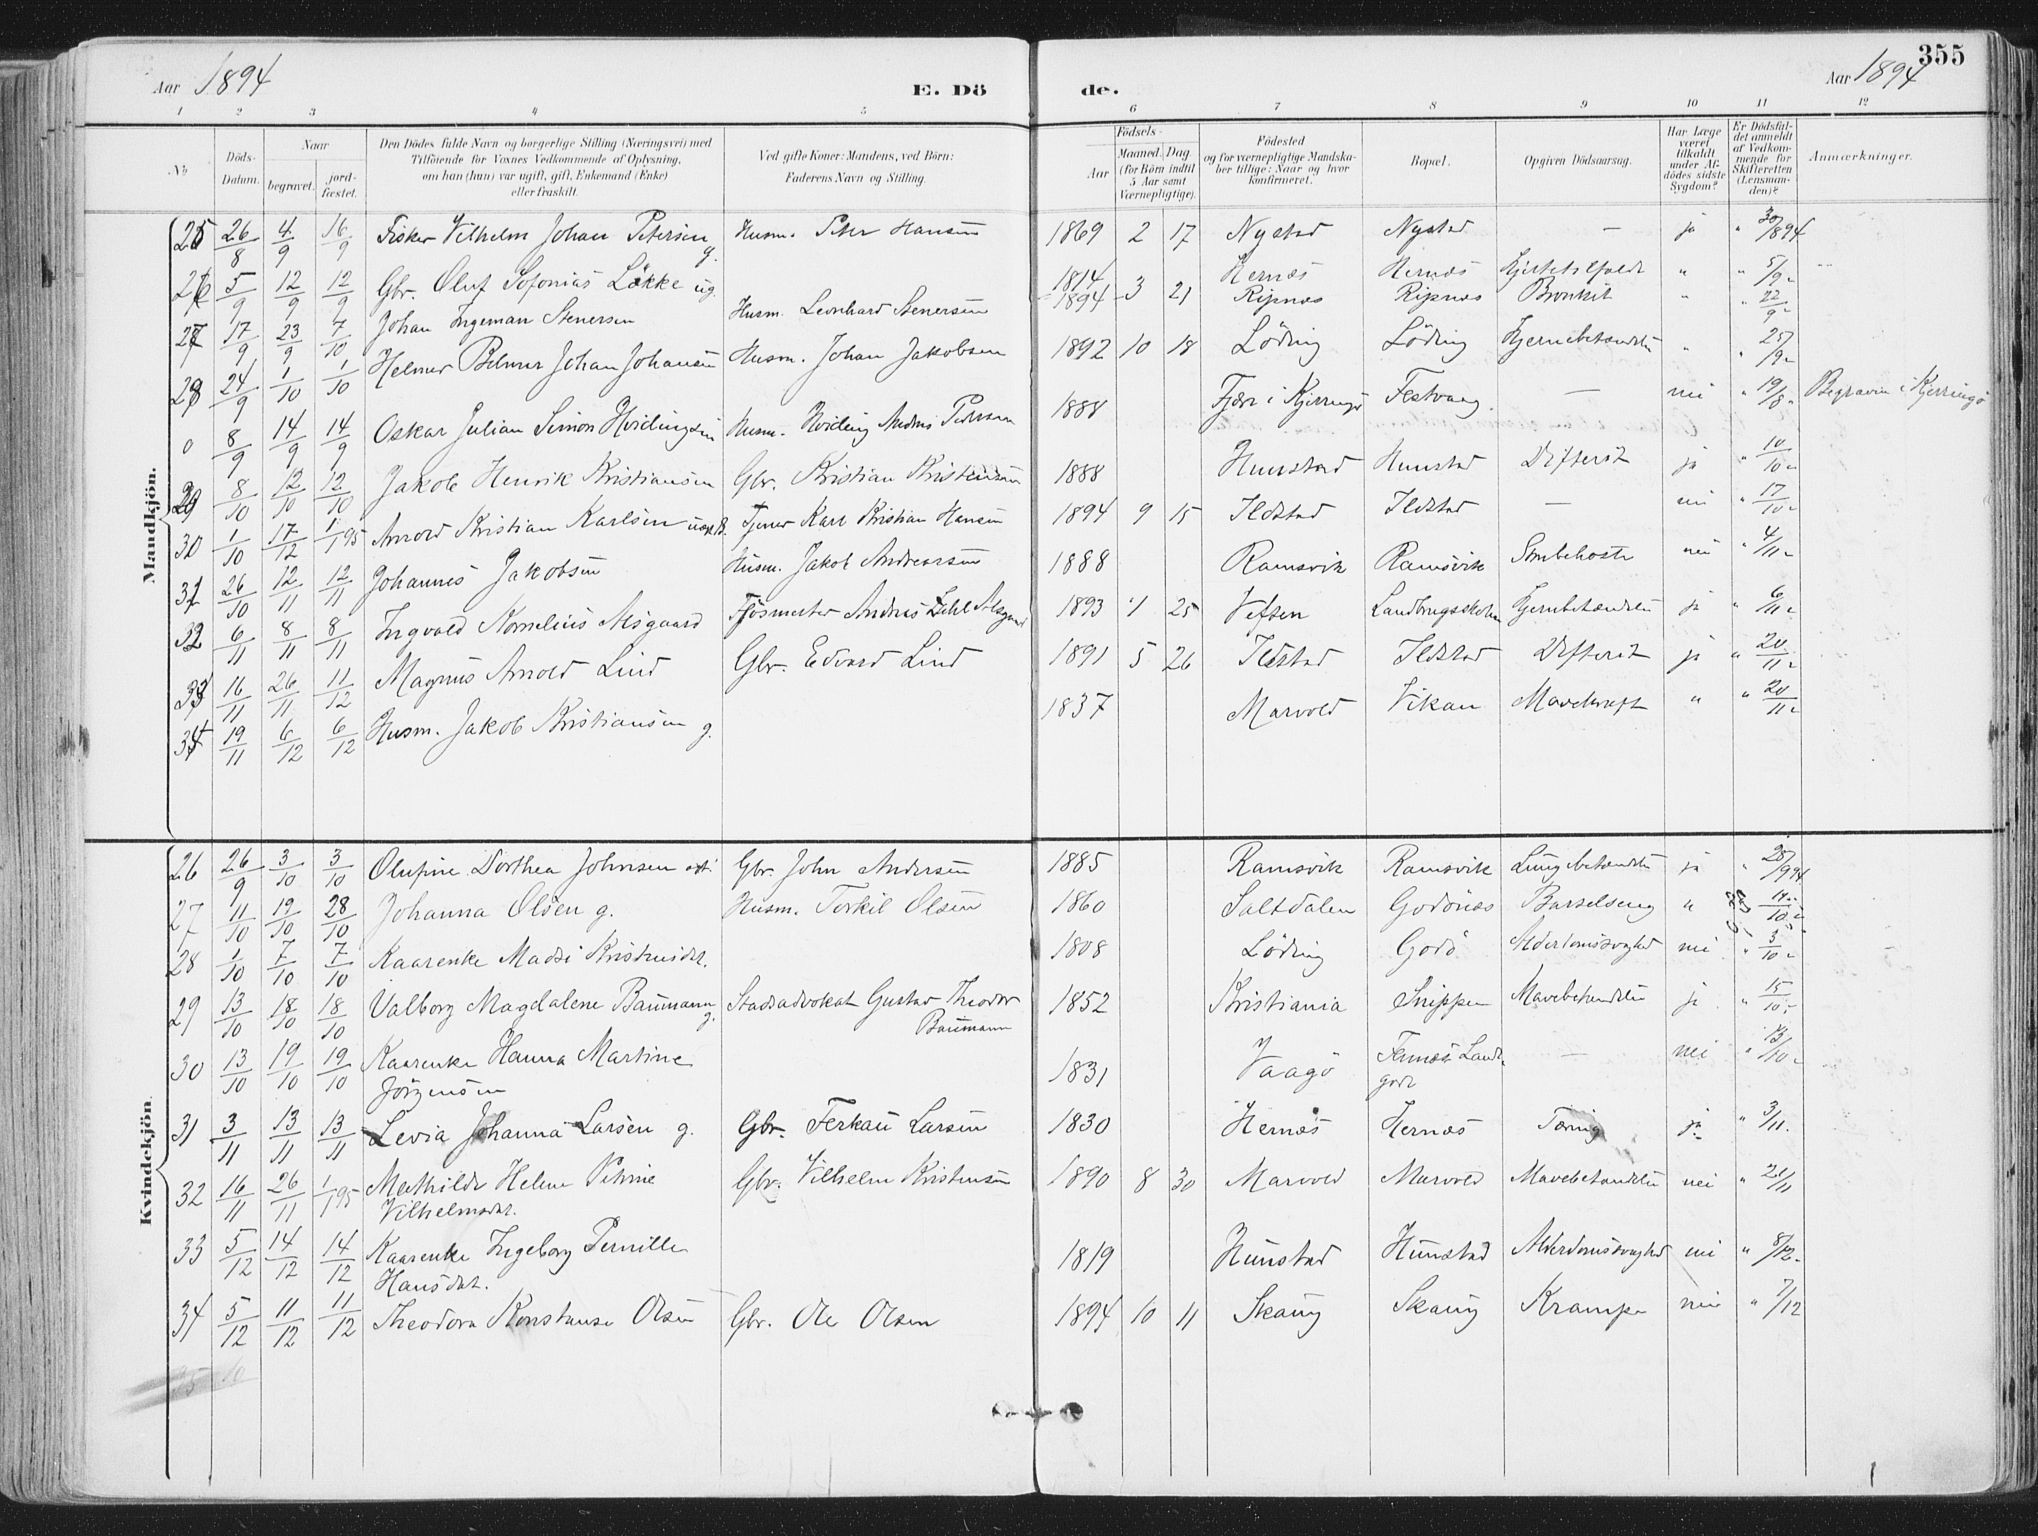 355
Aar 1894 E. Dö de. Aar 1894
1 2 3 4 5 6 7 8 9 10 11 12
No
Döds-Datum.
Naar
begravet.
jord-fæstet.
Den Dödes fulde Navn og borgerlige Stilling (Næringsvei) med
Tilföiende for Voxnes Vedkommende af Oplysning,
om han (hun) var ugift, gift, Enkemand (Enke)
eller fraskilt.
Ved gifte Koner: Mandens, ved Börn:
Faderens Navn og Stilling.
Födsels-
Aar
Maaned. Dag
(for Börn indtil
5 Aar samt
Værnepligtige).
Födested
og for værnepligtige Mandska-
ber tillige: Naar og hvor
konfirmeret.
Bopæl.
Opgiven Dödsaarsag.
Har Læge
været
tilkaldt
under Af-
dödes sidste
Sygdom?
Er Dödsfal-
det anmeldt
af Vedkom-
mende for
Skifteretten
(Lensman-
den)?
Anmærkninger.
Mandkjön.
25 26/8 4/9 16/9 Fisker Vilhelm Johan Petersen g. Husm. Peter Hansen 1869 2 17 Nystad Nystad — ja " 30/894
26 5/9 12/9 12/9 Gbr. Oluf Sofonias Løkke ug. 1814 Hernæs Hernæs " " 5/9
27 17/9 23/9 7/10 Johan Ingeman Stenersen Husm. Leonhard Stenersen 1894 3 21 Ripnæs Ripnæs Bronkit " " 22/9
28 24/9 1/10 1/10 Helmer Johan Johansen Husm. Johan Jakobsen 1892 10 18 Löding Löding Hjernebetændelse " " 25/9
0 8/9 14/9 14/9 Oskar Julian Simon Hvidingsen Husm. Hviding Andreas Pedersen 1888 Fjære i Kjerringø Festvaag — nei " 19/8 Begraven i Kjerringø
29 8/10 12/10 12/10 Jakob Henrik Kristiansen Gbr. Kristian Kristensen 1888 Hunstad Hunstad Difterit ja " 10/10
30 1/10 17/12 1/1 95 Arnold Kristian Karlsen Tjener Karl Kristian Hansen 1894 9 15 Ildstad Ildstad — nei " 17/10
31 26/10 12/11 12/11 Johannes Jakobsen Husm. Jakob Andreassen 1888 Ramsvik Ramsvik nei " 4/11
32 6/11 8/11 8/11 Ingvald Kornelius Alsgaard Fjösmester Andreas Dahl Alsgaard 1893 1 25 Vefsen Landbrugsskolen Hjernebetændelse ja " 6/11
33 16/11 26/11 11/12 Magnus Arnold Lind Gbr. Edvard Lind 1891 5 26 Ildstad Ildstad Difterit ja " 20/11
34 19/11 6/12 6/12 Husm. Jakob Kristiansen g. 1837 Marvold Vikan Mavekræft " " 20/11
Kvindekjön.
26 26/9 3/10 3/10 Olufine Dorthea Johnsen Gbr. John Andersen 1885 Ramsvik Ramsvik Lungebetændelse ja " 28/994
27 11/10 19/10 28/10 Johanna Olsen g. Husm. Torkil Olsen 1860 Saltdalen Godönes Barselseng " 11/10
28 1/10 7/10 7/10 Kaarenke Madsi Kristensdat. 1808 Löding Godö Alderdomssvaghed nei " 3/10
29 13/10 18/10 18/10 Valborg Magdalene Baumann g. Stadsadvokat Gustav Theodor
Baumann 1852 Kristiania Snippen Mavebetændelse ja " 15/10
30 13/10 19/10 19/10 Kaarenke Hanna Martine
Jörgensen 1831 Vaagö Fennes Land-
gode — nei " 13/10
31 3/11 13/11 13/11 Levia Johanna Larsen g. Gbr. Ferkau Larsen 1830 Hernæs Hernæs Tæring ja " 3/11
32 16/11 26/11 1/1 95 Mathilde Helene Petrine
Vilhelmsdat. Gbr. Vilhelm Kristensen 1890 8 30 Marvold Marvold Mavebetændelse nei " 21/11
33 5/12 14/12 14/12 Kaarenke Ingeborg Pernille
Hansdat. 1819 Hunstad Hunstad Alderdomssvaghed nei " 8/12
34 5/12 11/12 11/12 Theodora Konstanse Olsen Gbr. Ole Olsen 1894 10 11 Skaug Skaug Krampe nei " 7/12